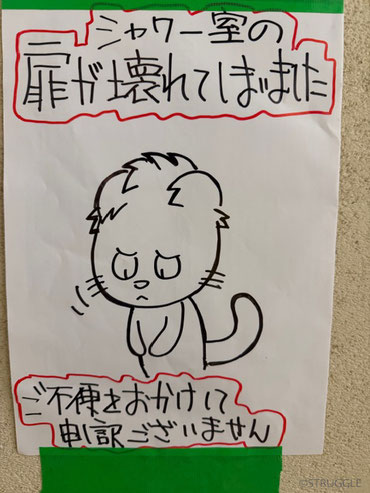 シャワー室の
扉が壊れてしまいました
ご不便をおかけして
申し訳ございません
©STRUGGLE